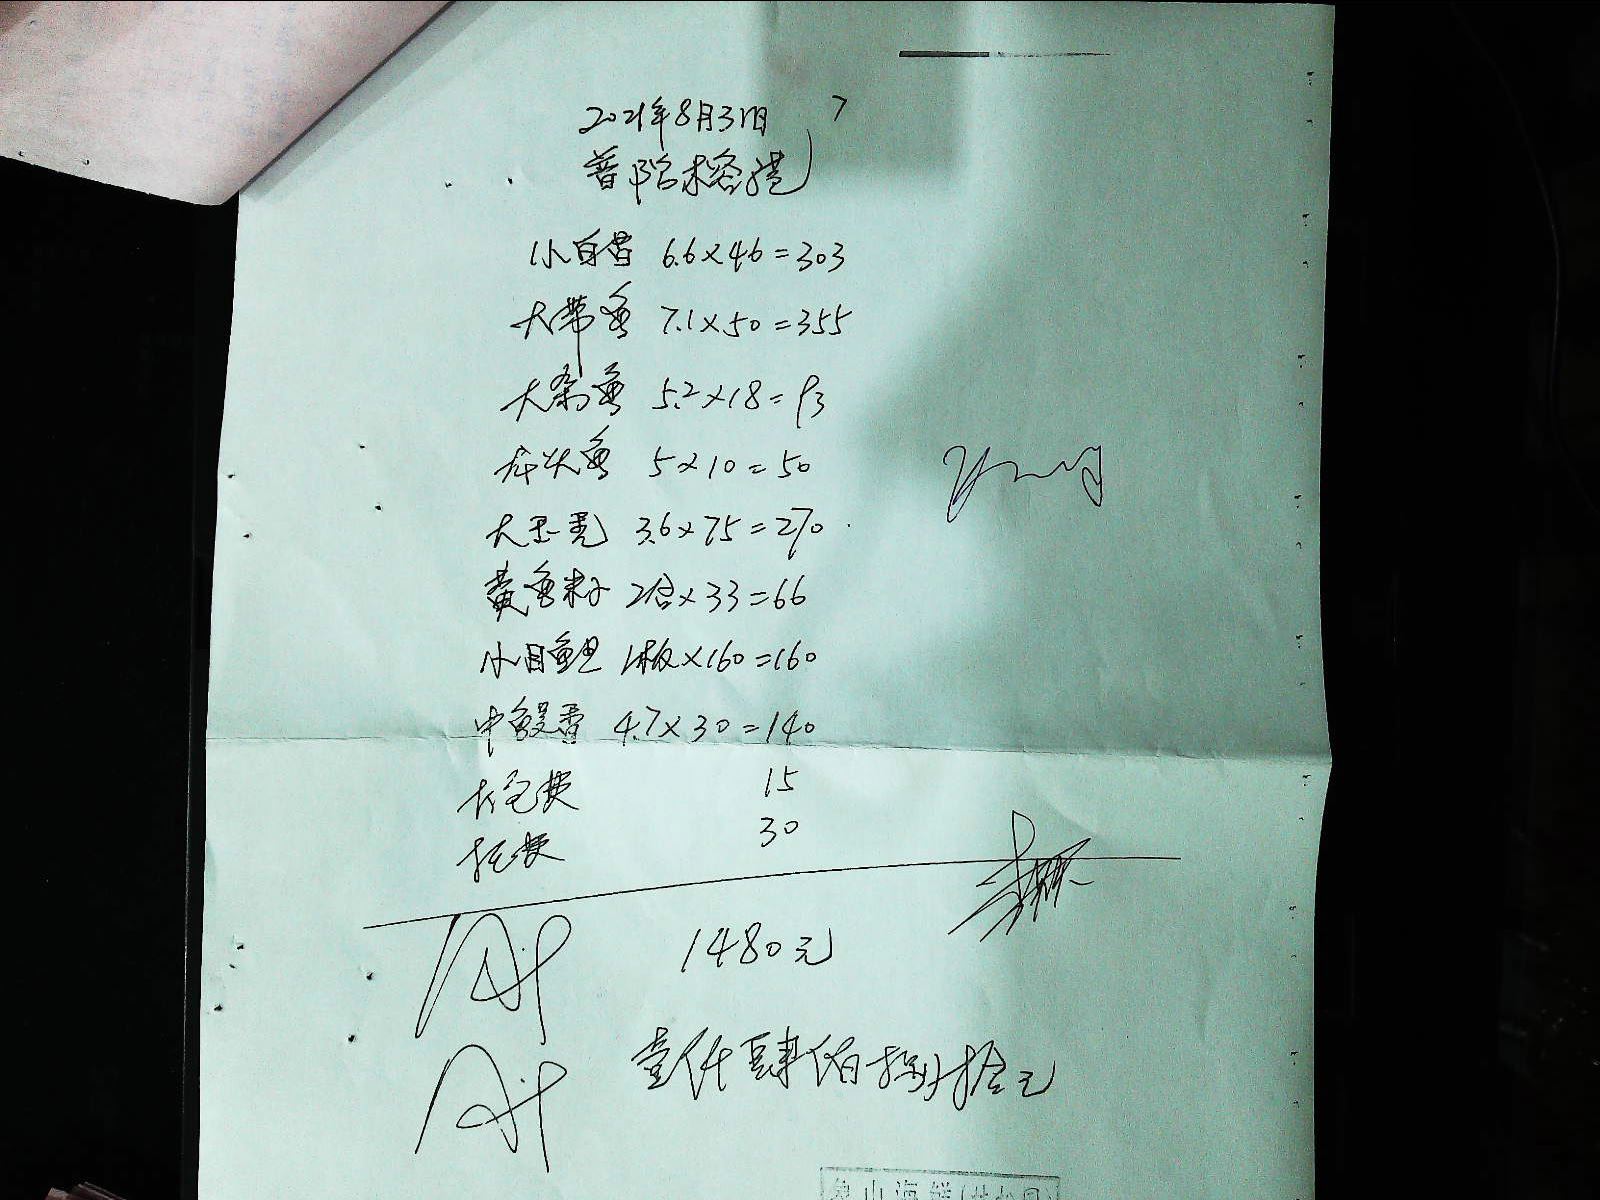 2021年8月31日
普陀榕港
小白鲳 6.6×46=303
大带鱼 7.1×50=355
大条鱼 5.2×18=93
5×10=50
大玉秃 3.6×75=270
黄鱼籽 2合×33=66
小目鱼旦 1板×160=160
中鳗香 4.7×30=140
打包费 15
托费 30
1480元
壹仟肆佰捌拾元
象山海鲜